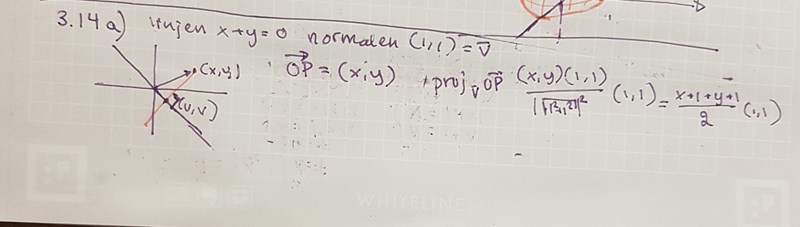 3.14 a) linjen x+y=0 normalen (1,1) = v̄
(x,y) OP⃗ = (x,y) proj_v̄ OP⃗ (x,y)(1,1) / |√1²+1²|² (1,1) = x+1+y+1 / 2 (1,1)
(u,v)
WHYELINES